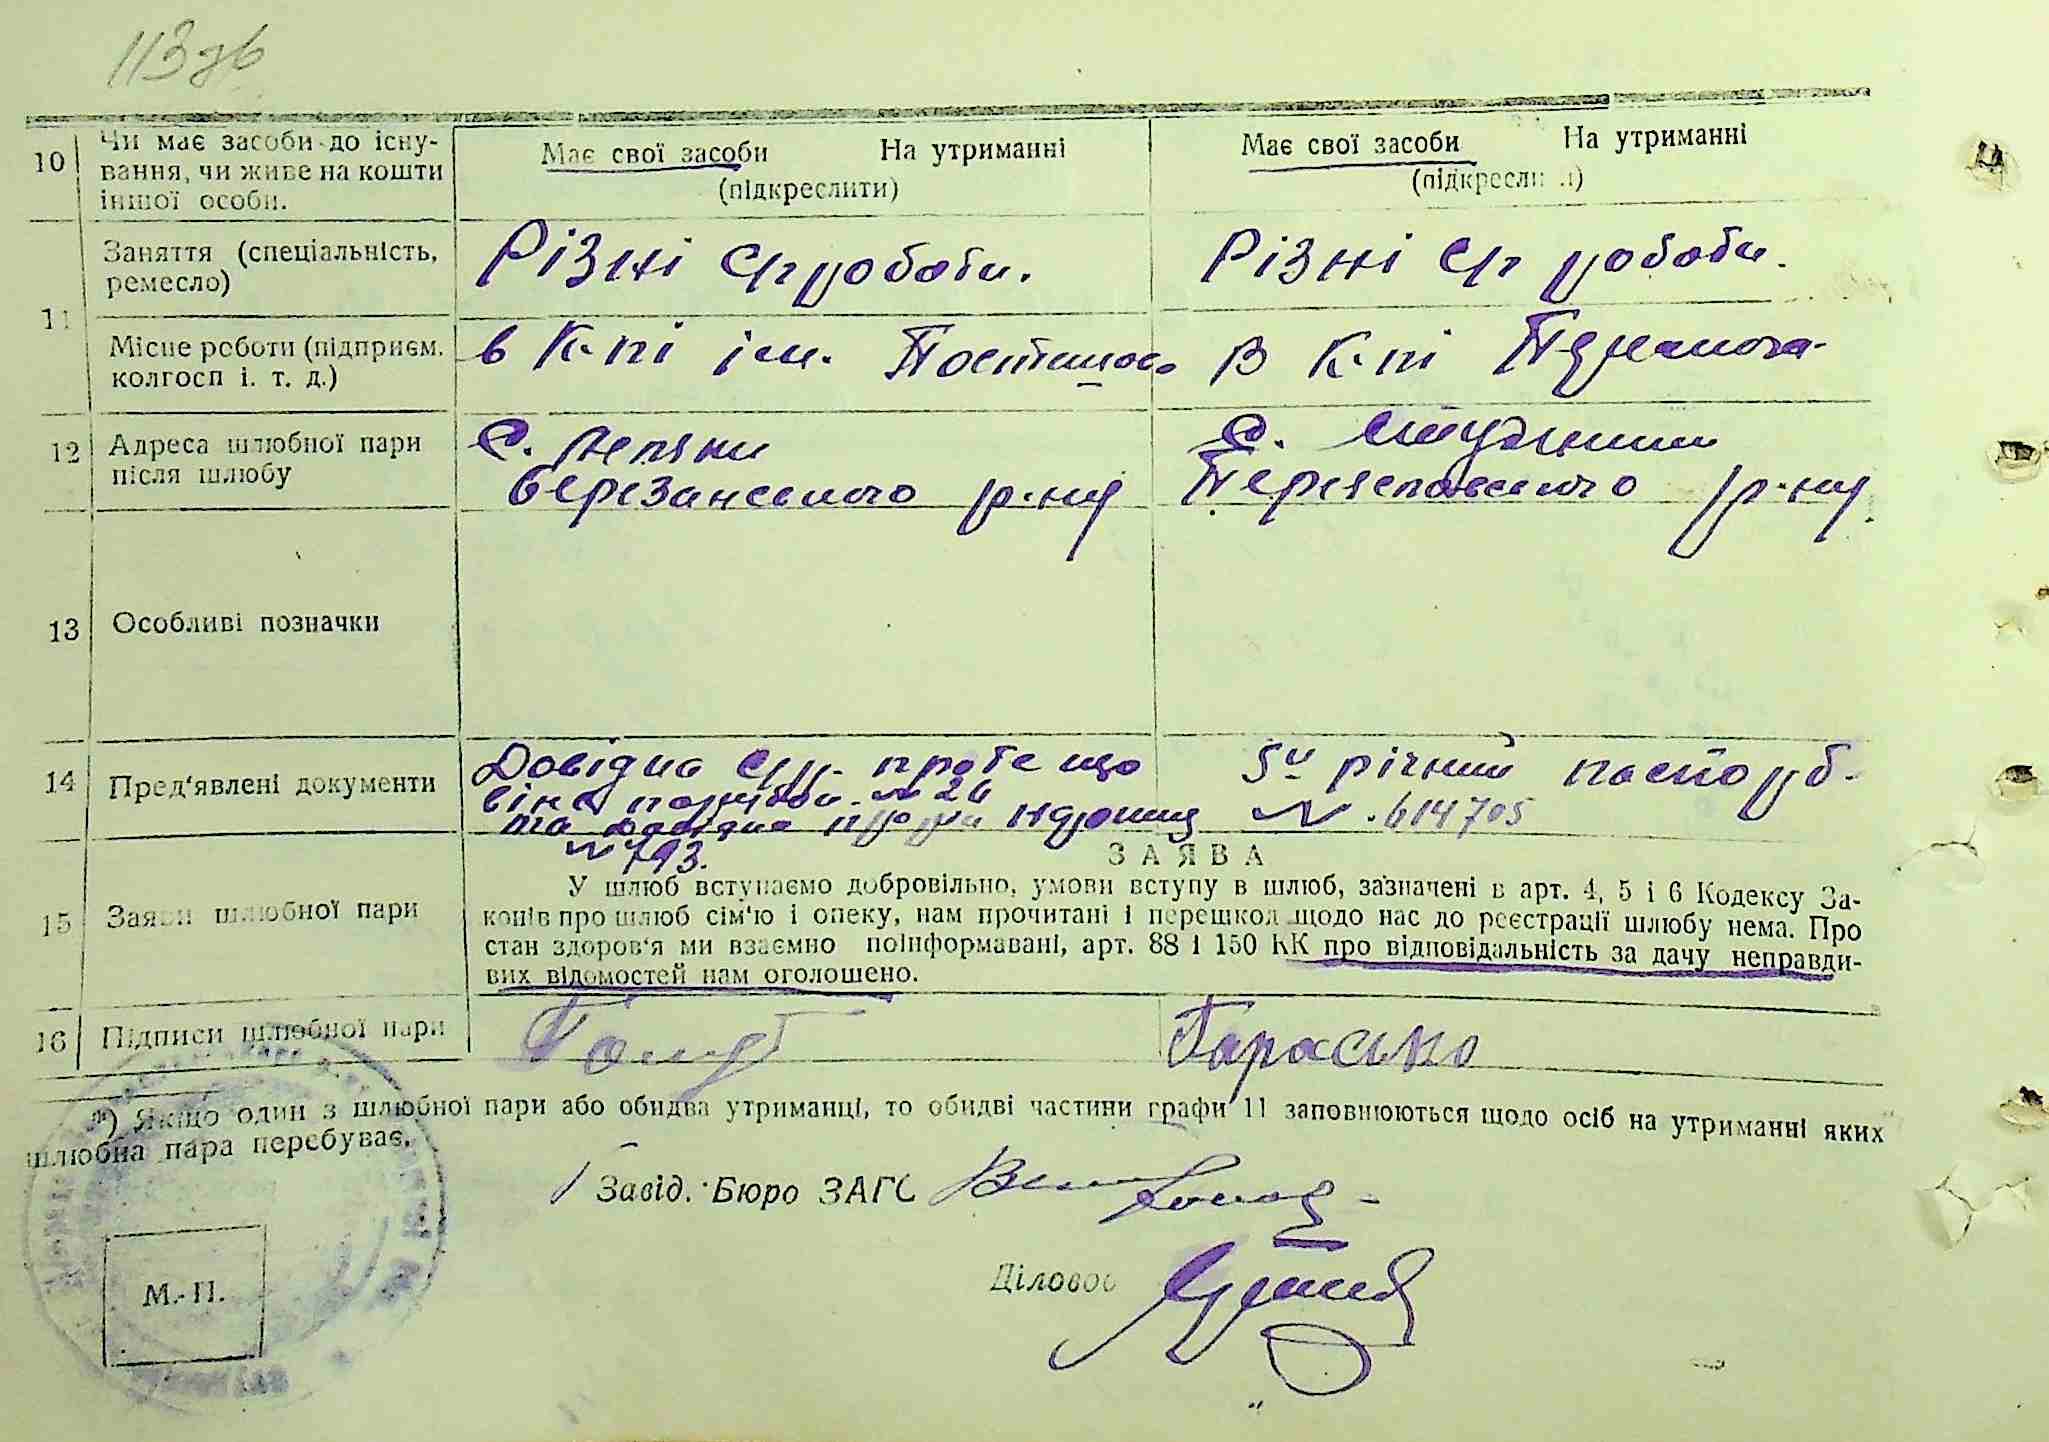 113 зв
10 Чи має засоби до існу-
вання, чи живе на кошти
іншої особи.
Має свої засоби На утриманні
(підкреслити)
Має свої засоби На утриманні
(підкресли и)
11 Заняття (спеціальність,
ремесло)
Різні с/г роботи.
Різні с/г роботи.
Місце роботи (підприєм.
колгосп і. т. д.)
в К-пі ім.
В К-пі
12 Адреса шлюбної пари
після шлюбу
С. Лепляни
Березанського р-ну
С. Студники
Переяславського р-ну
13 Особливі позначки
14 Пред'явлені документи
Довідка с/р. проте що
№ 26
та довідка
№ 793.
5и річний паспорт
№. 614705
15 Заяви шлюбної пари
ЗАЯВА
У шлюб вступаємо добровільно, умови вступу в шлюб, зазначені в арт. 4, 5 і 6 Кодексу За-
конів про шлюб сім'ю і опеку, нам прочитані і перешкод щодо нас до реєстрації шлюбу нема. Про
стан здоров'я ми взаємно поінформавані, арт. 88 і 150 КК про відповідальність за дачу неправди-
вих відомостей нам оголошено.
16 Підписи шлюбної пари
Голуб
Тарасько
*) Якщо один з шлюбної пари або обидва утриманці, то обидві частини графи 11 заповнюються щодо осіб на утриманні яких
шлюбна пара перебуває.
Завід. Бюро ЗАГС
Діловод
М.-П.